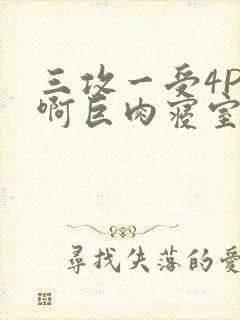 三攻一受4P
啊巨肉寝室
尋找失落的愛